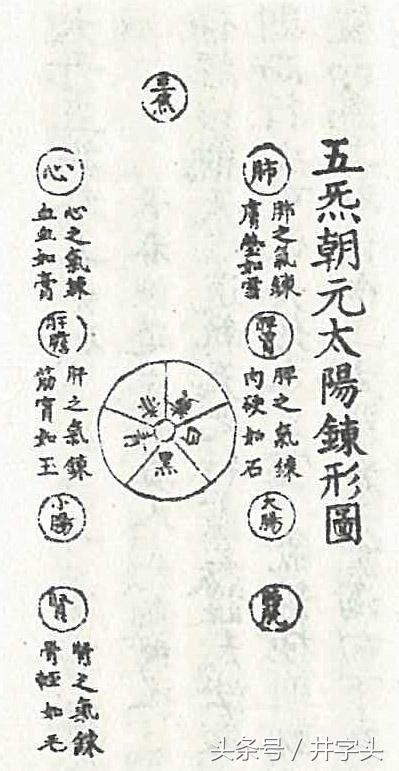 五炁朝元太陽鍊形圖
肺
肺之氣練
膚瑩如雪
脾胃
脾之氣練
肉硬如石
大腸
膀胱
三焦
白
青
黑
心
心之氣練
血血如膏
肝膽
肝之氣鍊
筋實如玉
小腸
腎
腎之氣鍊
骨輕如毛
头条号 / 井字头